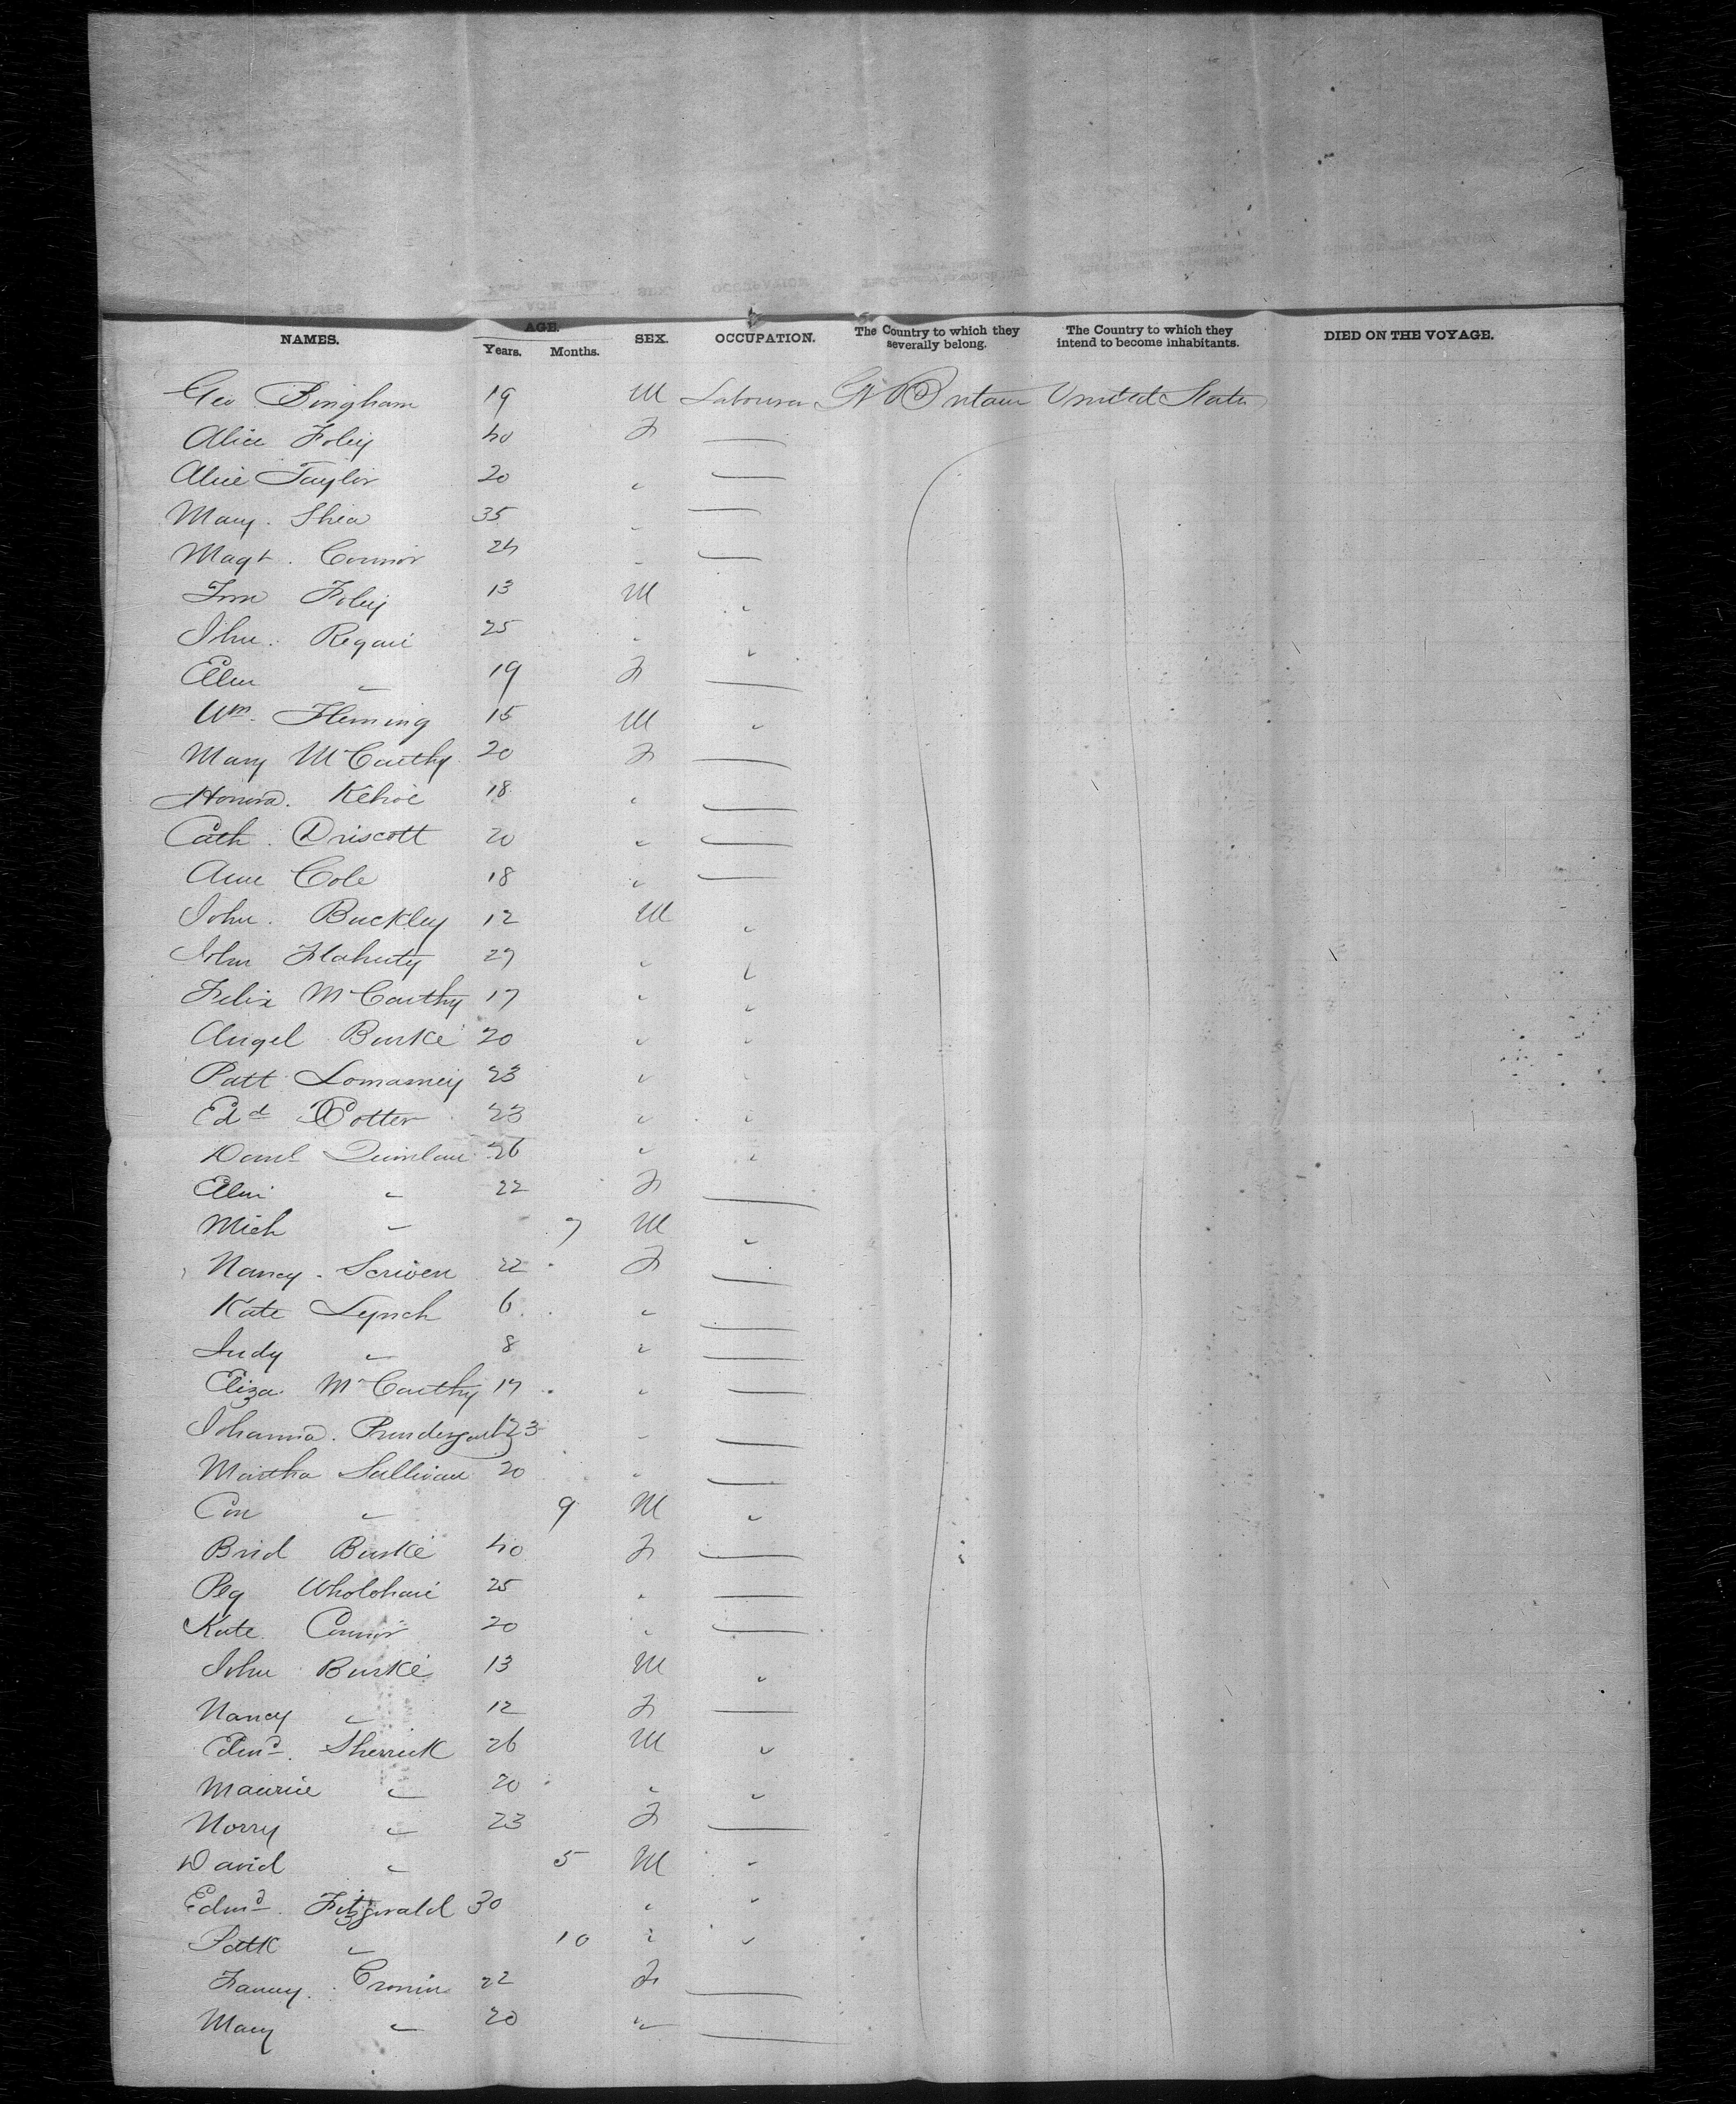 NAMES. AGE. Years. Months. SEX. OCCUPATION. The Country to which they severally belong. The Country to which they intend to become inhabitants. DIED ON THE VOYAGE.
Geo Bingham 19 M Labourer Gt Britain United States
Alice Foley 40 F —
Alice Taylor 20 " —
Mary. Shea 35 " —
Magt. Connor 24 " —
Foley 13 M "
Jhn. Regan 25 " "
Ellen " 19 F —
Wm. Fleming 15 M "
Mary McCarthy 20 F —
Honora. Kehoe 18 " —
Cath. Driscott 20 " —
Ann Cole 18 " —
John. Buckley 12 M "
John Flaherty 27 " "
Felix McCarthy 17 " "
Angel Burke 20 " "
Patt Lomasney 23 " "
Edd Cotter 23 " "
Danl Quinlan 26 " "
Ellen " 22 F —
Mich " 7 M "
Nancy. Scriven 22 F —
Kate Lynch 6 " —
Judy " 8 " —
Eliza McCarthy 17 " —
Johanna. Prendergast 23 " —
Martha Sullivan 20 " —
Con " 9 M "
Brid Burke 40 F —
Peg Wholohan 25 " —
Kate Connor 20 " —
John Burke 13 M "
Nancy " 12 F —
Edmd. Sherrick 26 M "
Maurice " 20 " "
Norry " 23 F —
David " 5 M "
Edmd. Fitzgerald 30 " "
Patk " 10 " "
Fanny. Cronin 22 F —
Mary " 20 " —